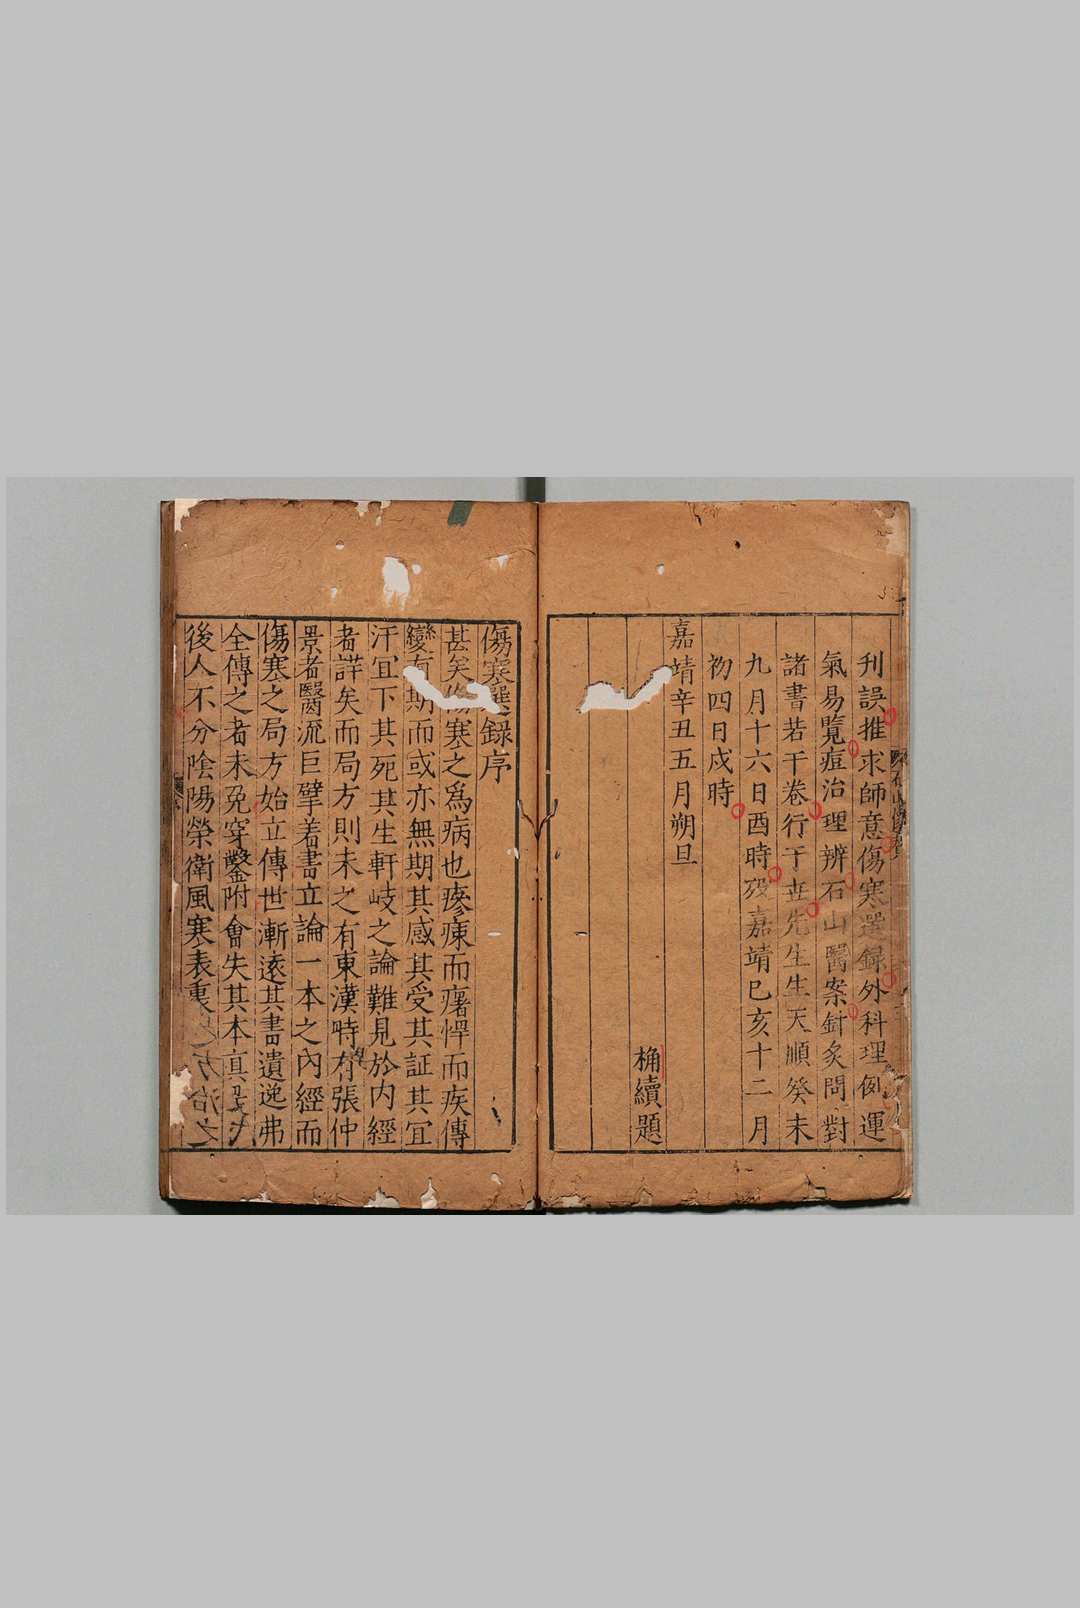 刋誤推求師意傷寒選録外科理例運
氣易覽痘治理辨石山醫案針灸問對
諸書若干卷行于世先生生天順癸未
九月十六日酉時歿嘉靖巳亥十二月
初四日戍時
嘉靖辛丑五月朔旦
桷續題
傷寒選録序
甚矣傷寒之爲病也瘮瘶而㿇悍而疾傳
變有期而或亦無期其感其受其証其宜
汗宜下其死其生軒岐之論難見於内經
者詳矣而局方則未之有東漢時有張仲
景者醫流巨擘着書立論一本之內經而
傷寒之局方始立傳世漸逺其書遺逸弗
全傳之者未免穿鑿附會失其本真
後人不分隂陽榮衛風寒表裏